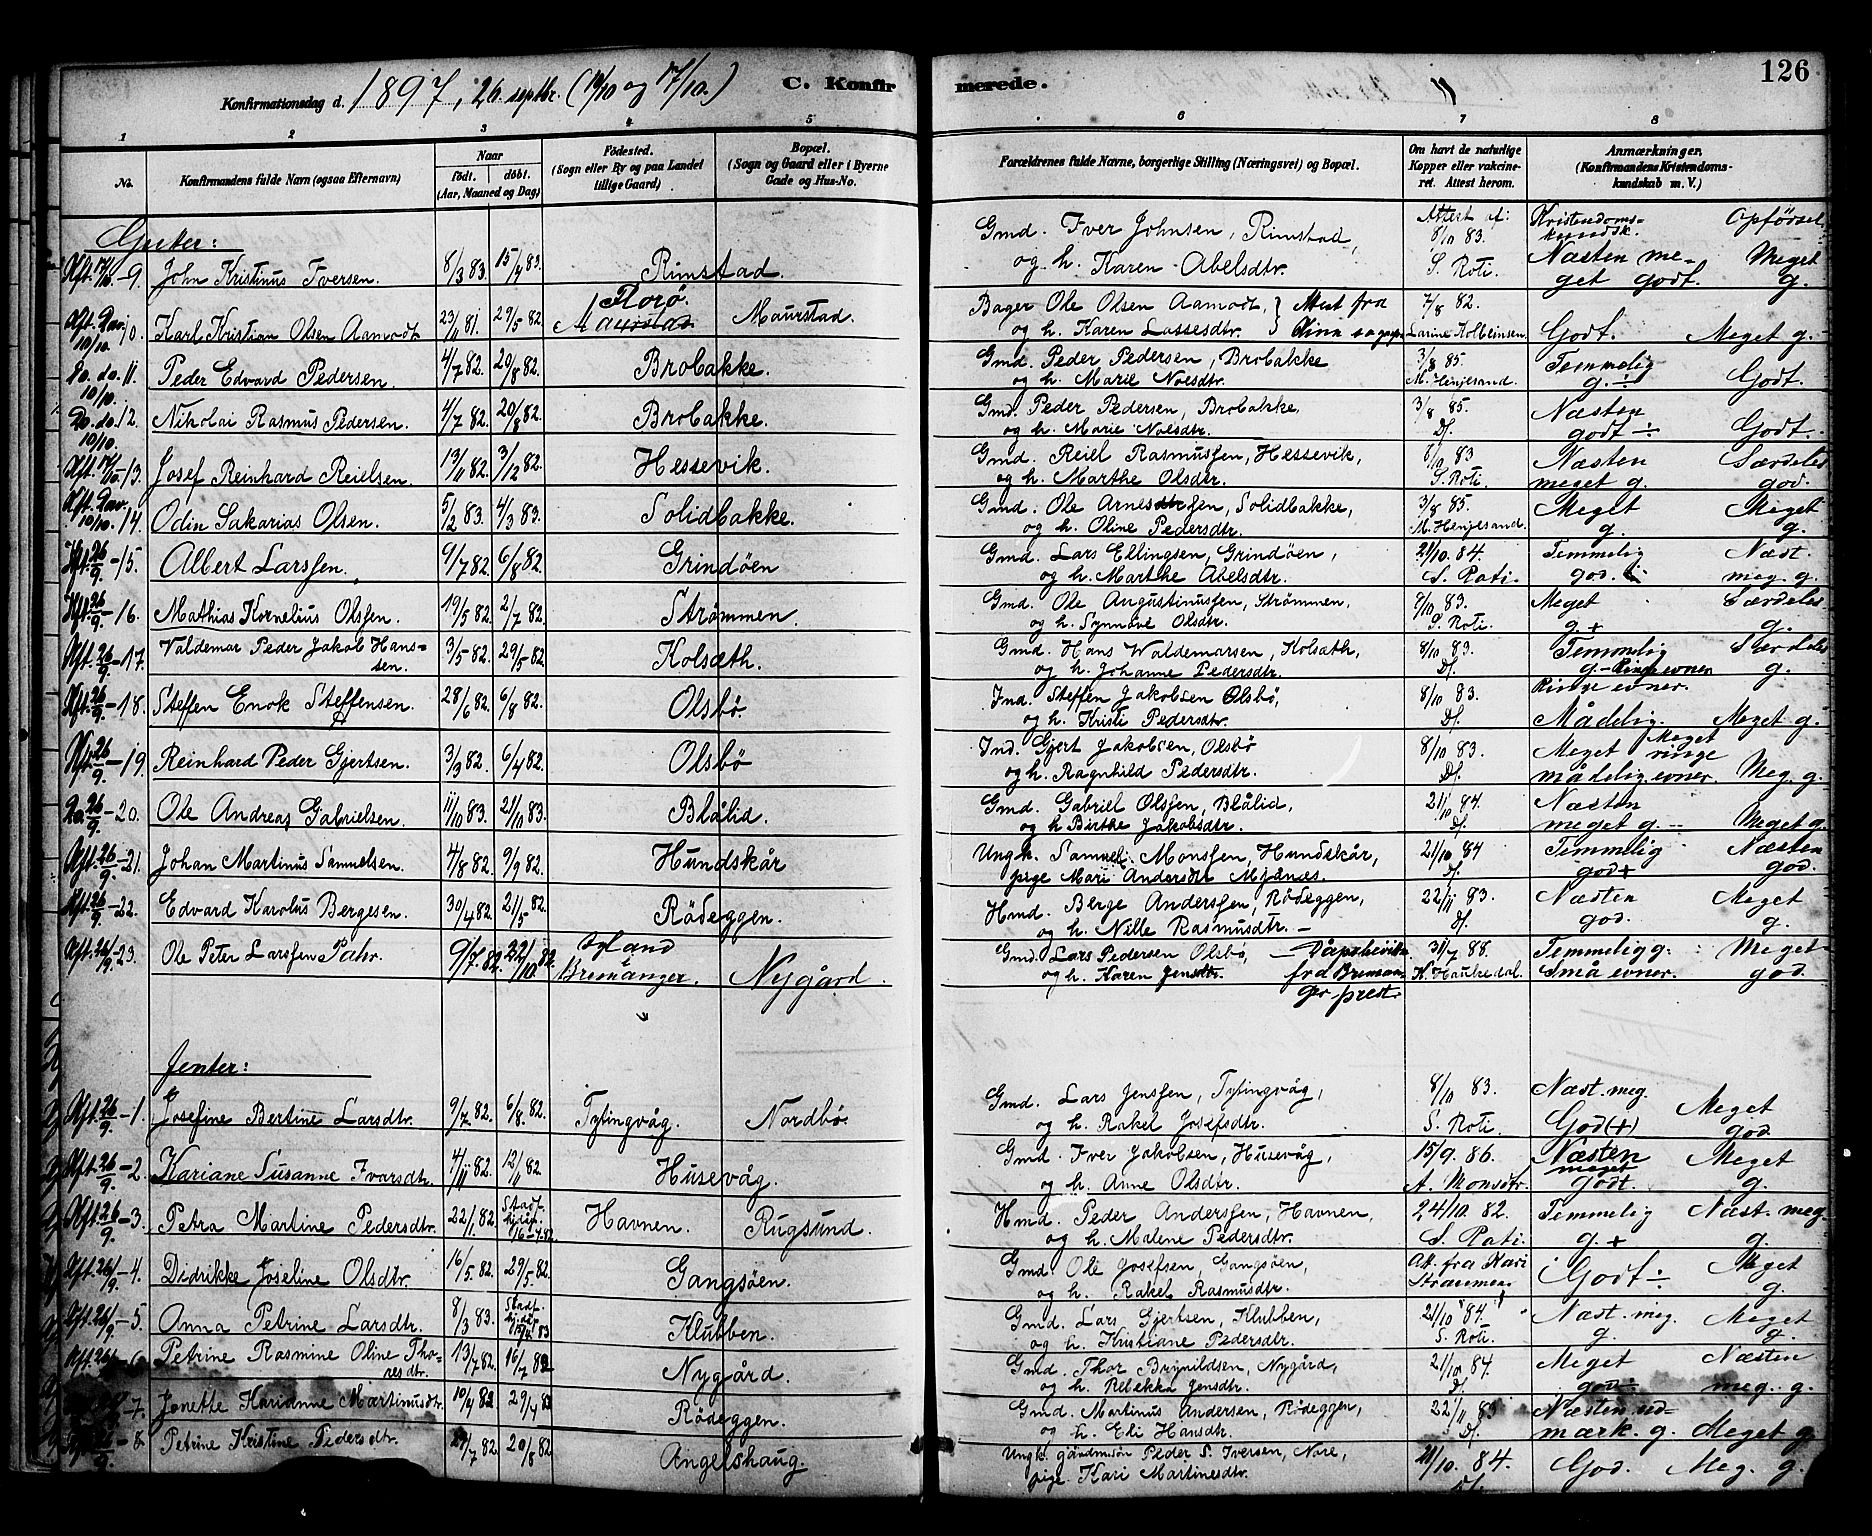 126
Konfirmationsdag d. 1897, 26. septbr. (10/10 og 17/10.) C. Konfirmerede.
1 2 3 4 5 6 7 8
No. Konfirmandens fulde Navn (ogsaa Efternavn) Naar født. døbt. (Aar, Maaned og Dag) Fødested. (Sogn eller By og paa Landet tillige Gaard) Bopæl. (Sogn og Gaard eller i Byerne Gade og Hus-No. Forældrenes fulde Navne, borgerlige Stilling (Næringsvei) og Bopæl. Om havt de naturlige Kopper eller vakcineret. Attest herom. Anmærkninger, (Konfirmandens Kristendomskundskab m. V.)
Gutter: Attest af: Kristendomskundsk. Opførsel
Kft. 17/10 - 9. John Kristinus Iversen. 8/3 83. 15/4 83. Rimstad. Gmd. Iver Johnsen, Rimstad, 8/10 83. Næsten me- Meget
og h. Karen Abelsdtr. S. Roti. get godt. g.
10/10. 10. Karl Kristian Olsen Aamodt 23/11 81. 29/5 82. Florø Maurstad Maurstad. Bager Ole Olsen Aamodt, 7/8 82. Godt. Meget g.
og h. Karen Lassesdtr. Attest fra
Do. do. 11. Peder Edvard Pedersen. 4/7 82. 20/8 82. Brobakke. Gmd. Peder Pedersen, Brobakke 3/8 85. Temmelig Godt.
10/10. og h. Marie Nilsdtr. M. Henjesand. g. ÷
Do. do. 12. Nikolai Rasmus Pedersen. 4/7 82. 20/8 82. Brobakke. Gmd. Peder Pedersen, Brobakke, 3/8 85. Næsten Godt.
10/10. og h. Marie Nilsdtr. D/. godt ÷
Kft. 17/10 - 13. Josef Reinhard Reielsen. 13/11 82. 3/12 82. Hessevik. Gmd. Reiel Rasmussen, Hessevik, 8/10 83 Næsten Særdeles
og h. Marthe Olsdtr. S. Roti. meget g. god.
10/10. 14. Odin Sakarias Olsen. 5/2 83. 4/3 83. Solidbakke. Gmd. Ole Arnessen, Solidbakke, 3/8 85. Meget Meget
og h. Oline Pedersdtr. M. Henjesand. g. g.
Kft. 26/9 - 15. Albert Larssen. 9/7 82. 6/8 82. Grindøen Gmd. Lars Ellingsen, Grindøen, 21/10. 84. Temmelig Næst.
og h. Marthe Abelsdtr. S. Roti. god. meg. g.
Kft. 26/9 - 16. Mathias Kornelius Olssen. 19/5 82. 2/7 82. Strømmen. Gmd. Ole Augustinussen, Strømmen, 8/10 83. Meget Særdeles
og h. Synnøve Olsdtr. S. Roti. g. + g.
Kft. 26/9 - 17. Valdemar Peder Jakob Hanssen. 3/5 82. 29/5 82. Kolsæth. Gmd. Hans Waldemarsen, Kolsæth, 8/10 83. Temmelig Særdeles
og h. Johanne Pedersdtr. D/. g. - Ringe evner g.
Kft. 26/9 - 18. Steffen Enok Steffensen. 28/6 82. 6/8 82. Olsbø. Ind. Steffen Jakobsen Olsbø, 8/10 83. Ringe evner.
og h. Kristi Pedersdtr. D/. Mådelig. Meget g.
Kft. 26/9 - 19. Reinhard Peder Gjertsen. 3/3 82. 6/4 82. Olsbø Ind. Gjert Jakobsen, Olsbø 8/10 83. Meget Meget ringe
og h. Ragnhild Pedersdtr. D/. mådelig evner. Meg. g.
Do. 26/9 - 20. Ole Andreas Gabrielsen. 11/10 83. 21/10 83. Blålid. Gmd. Gabriel Olssen, Blålid, 21/10 84. Næsten
og h Birthe Jakobsdtr. D/. meget g. - Meget g.
Kft. 26/9 - 21. Johan Martinus Samuelsen. 4/8 82. 9/9 82. Hundskår Ungk. Samuel Monssen, Hundskår, 21/10 84 Temmelig Næsten
pige Mari Andersdtr Mjånes. D/. god + god.
Kft. 26/9 - 22. Edvard Karolus Bergesen. 30/4 82. 21/5 82. Rödeggen. Hmd. Berge Anderssen, Rödeggen, 22/11 83. Næsten Meget
og h. Nille Rasmusdtr. - D/. god. g.
Kft. 26/9 - 23. Ole Peter Larssen Pahr. 9/7. 82. 22/10. 82. Bremanger. Nygård. Gmd. Lars Pedersen Olsbø, 31/7 88. Temmelig g. Meget
og h. Karen Jensdtr. fra Bremanger prest. K. Haukedal. Små evner. god.
Jenter:
Kft. 26/9 - 1. Josefine Bertine Larsdtr. 9/7 82. 6/8. 82. Tytingvåg. Nordbø. Gmd. Lars Jenssen, Tytingvåg, 8/10 83. Næst. meg. Meget
og h. Rakel Josefsdtr. S. Roti. God (+) god.
Kft. 26/9 - 2. Kariane Susanne Ivarsdtr. 4/11 82. 12/11 82 Husevåg. Gmd. Iver Jakobsen, Husevåg, 15/9. 86. Næsten Meget
og h. Anne Olsdtr. A. Monsdtr. meget godt. g.
Kft. 26/9 - 3. Petra Martine Pedersdtr. 22/1 82. Stadf. hjdåb 16-4-82. Havnen. Rugsund. Hmd. Peder Anderssen, Havnen, 24/10. 82. Temmelig Næst. meg.
og h. Malene Pedersdtr. S. Roti. g. + g.
Kft. 26/9 - 4. Didrikke Joseline Olsdtr. 16/5 82. 29/5 82. Gangsøen. Gmd. Ole Josefsen, Gangsøen, Att. fra Kari Godt ÷ Meget
og h. Rakel Rasmusdtr. Straumen g.
Kft. 26/9 - 5. Anna Petrine Larsdtr. 8/3 83. Stadf. Klubben. Gmd. Lars Gjertsen, Klubben, 21/10 84. Næst. meg. Meget
og h. Kristiane Pedersdtr. S. Roti. g. g.
Kft. 26/9 - 6 Petrine Rasmine Oline Thoresdtr. 13/7 82. 16/7 82 Nygård. Gmd. Thor Brynildsen, Nygård, 21/10 84. Meget Næsten
og h. Rebekka Jensdtr. D/. god ÷ meg. g.
7. Jonette Karianne Martinusdtr. 10/4 82 29/4 82 Rödeggen. Gmd. Martinus Andersen, Rödeggen, 22/11 83 Næsten ud-
og h. Eli Hansdtr. D/. mærk. g. Meget g.
8. Petrine Kristine Pedersdtr. 82. 20/8 82 Angelshaug. Ungk. gårdmsøn Peder S. Iversen, Nore, 21/10. 84. God. Meg. g.
pige Kari Martinesdtr. D/.